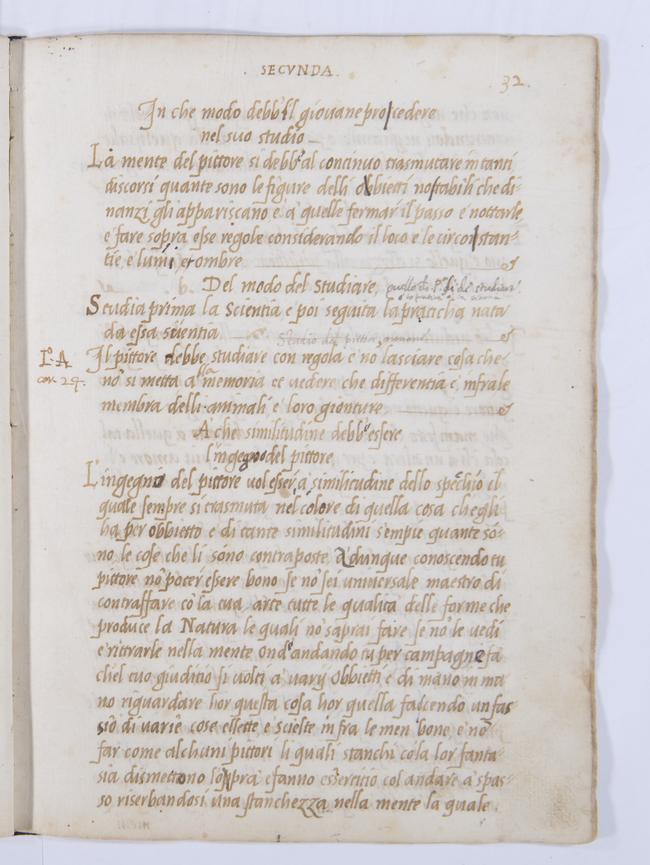 SECVNDA.
32.
In che modo debb'il giovane procedere
nel suo studio
La mente del pittore si debb'al continuo trasmutare in tanti
discorsi quante sono le figure delli obbietti nottabili che di-
nanzi gli appariscano e à quelle fermar il passo e nottarle
e fare sopra esse regole considerando il loco e le circonstan-
tie e lumi et ombre
Del modo del Studiare
quello ch
Studia prima la Scientia e poi seguita la praticha nata
da essa scientia
Studio del pittor
L.o A
car. 29.
Il pittore debbe studiare con regola e nō lasciare cosa che
nō si metta alla memoria et vedere che differentia è infra le
membra delli animali e loro gionture
A che similitudine debb'essere
l'ingegno del pittore
L'ingegno del pittore vol esser à similitudine dello spechio il
quale sempre si trasmuta nel colore di quella cosa ch egli
ha per obbietto e di tante similitudini s'empie quante so-
no le cose che li sono contraposte Adunque conoscendo tu
pittore nō poter essere bono se nō sei universale maestro di
contraffare cō la tua arte tutte le qualita delle forme che
produce la Natura le quali nō saprai fare se nō le vedi
e ritrarle nella mente ond'andando tu per campagne fa
ch el tuo giuditio si volti a varij obbietti e di mano in ma
no riguardare hor questa cosa hor quella facendo un fas-
sio di varie cose ellette e scielte infra le men bone e nō
far come alchuni pittori li quali stanchi cō la lor fanta-
sia dismettono l'opra e fanno essercitio col andare à spas-
so riserbandosi una stanchezza nella mente la quale